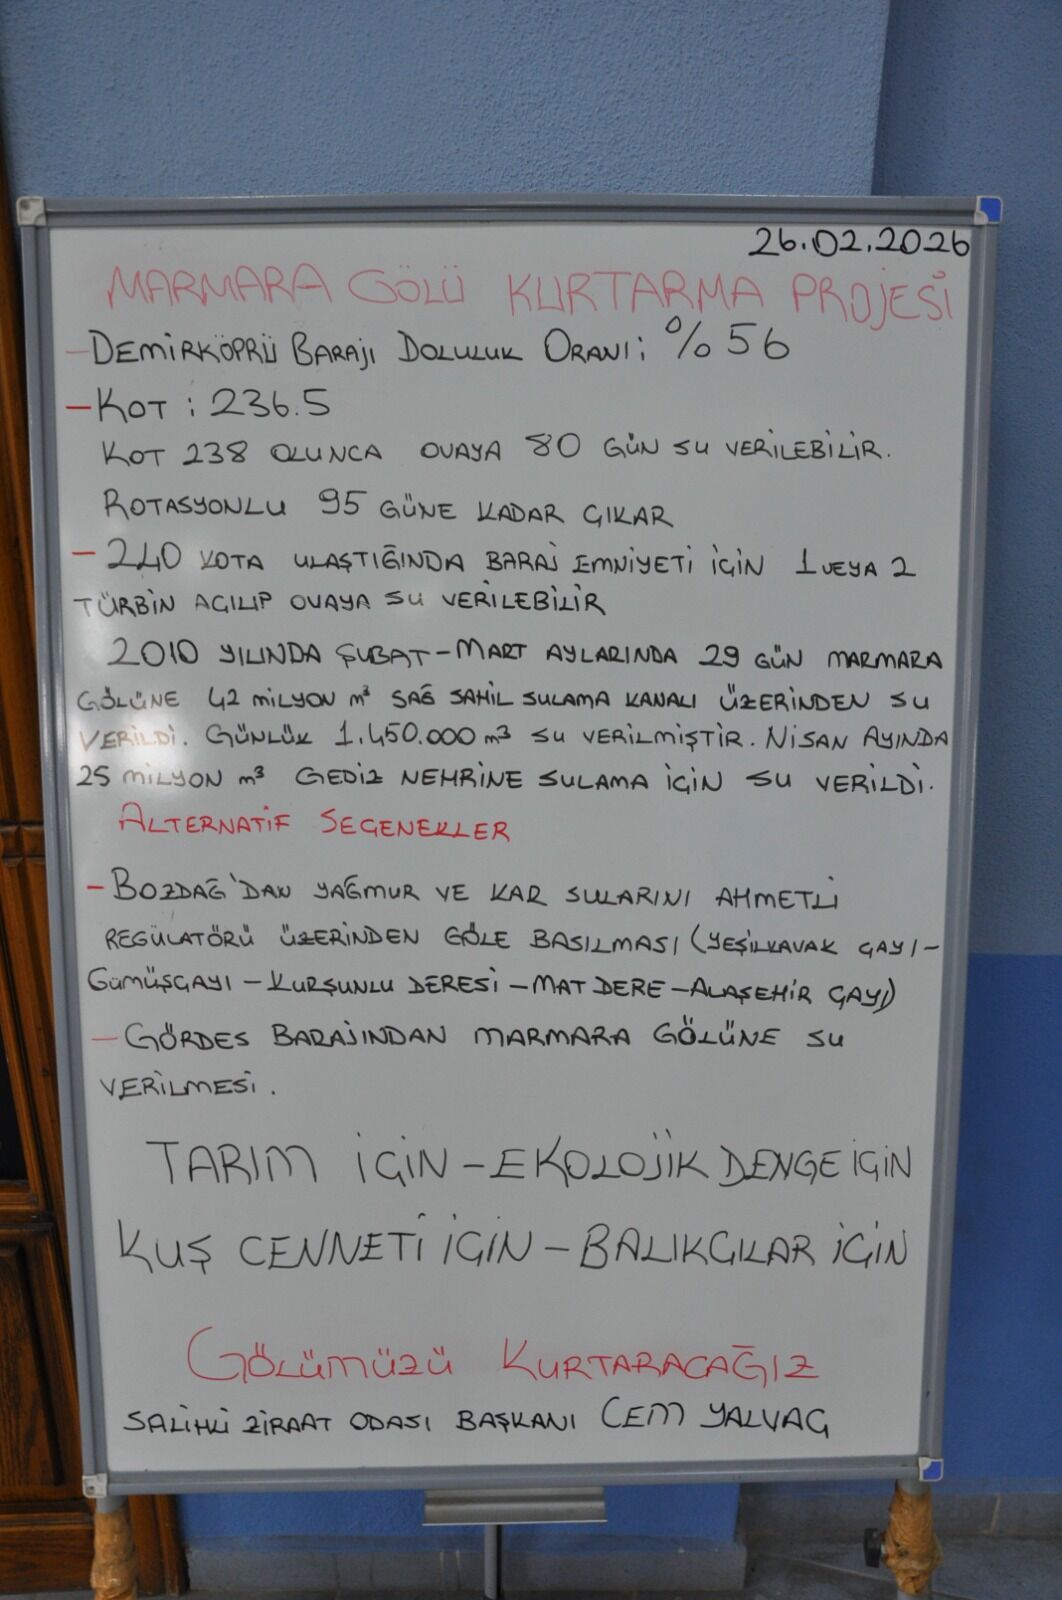 26.02.2026
MARMARA GÖLÜ KURTARMA PROJESİ
- DEMİRKÖPRÜ BARAJI DOLULUK ORANI: %56
- KOT : 236.5
KOT 238 OLUNCA OVAYA 80 GÜN SU VERİLEBİLİR.
ROTASYONLU 95 GÜNE KADAR ÇIKAR
- 240 KOTA ULAŞTIĞINDA BARAJ EMNİYETİ İÇİN 1 VEYA 2
TÜRBİN AÇILIP OVAYA SU VERİLEBİLİR
2010 YILINDA ŞUBAT-MART AYLARINDA 29 GÜN MARMARA
GÖLÜNE 42 MİLYON m³ SAĞ SAHİL SULAMA KANALI ÜZERİNDEN SU
VERİLDİ. GÜNLÜK 1.450.000 m³ SU VERİLMİŞTİR. NİSAN AYINDA
25 MİLYON m³ GEDİZ NEHRİNE SULAMA İÇİN SU VERİLDİ.
ALTERNATİF SEÇENEKLER
- BOZDAĞ'DAN YAĞMUR VE KAR SULARINI AHMETLİ
REGÜLATÖRÜ ÜZERİNDEN GÖLE BASILMASI (YEŞİLKAVAK ÇAYI-
GÜMÜŞÇAYI - KURŞUNLU DERESİ - MAT DERE - ALAŞEHİR ÇAYI)
- GÖRDES BARAJINDAN MARMARA GÖLÜNE SU
VERİLMESİ.
TARIM İÇİN - EKOLOJİK DENGE İÇİN
KUŞ CENNETİ İÇİN - BALIKÇILAR İÇİN
GÖLÜMÜZÜ KURTARACAĞIZ
SALİHLİ ZİRAAT ODASI BAŞKANI CEM YALVAÇ